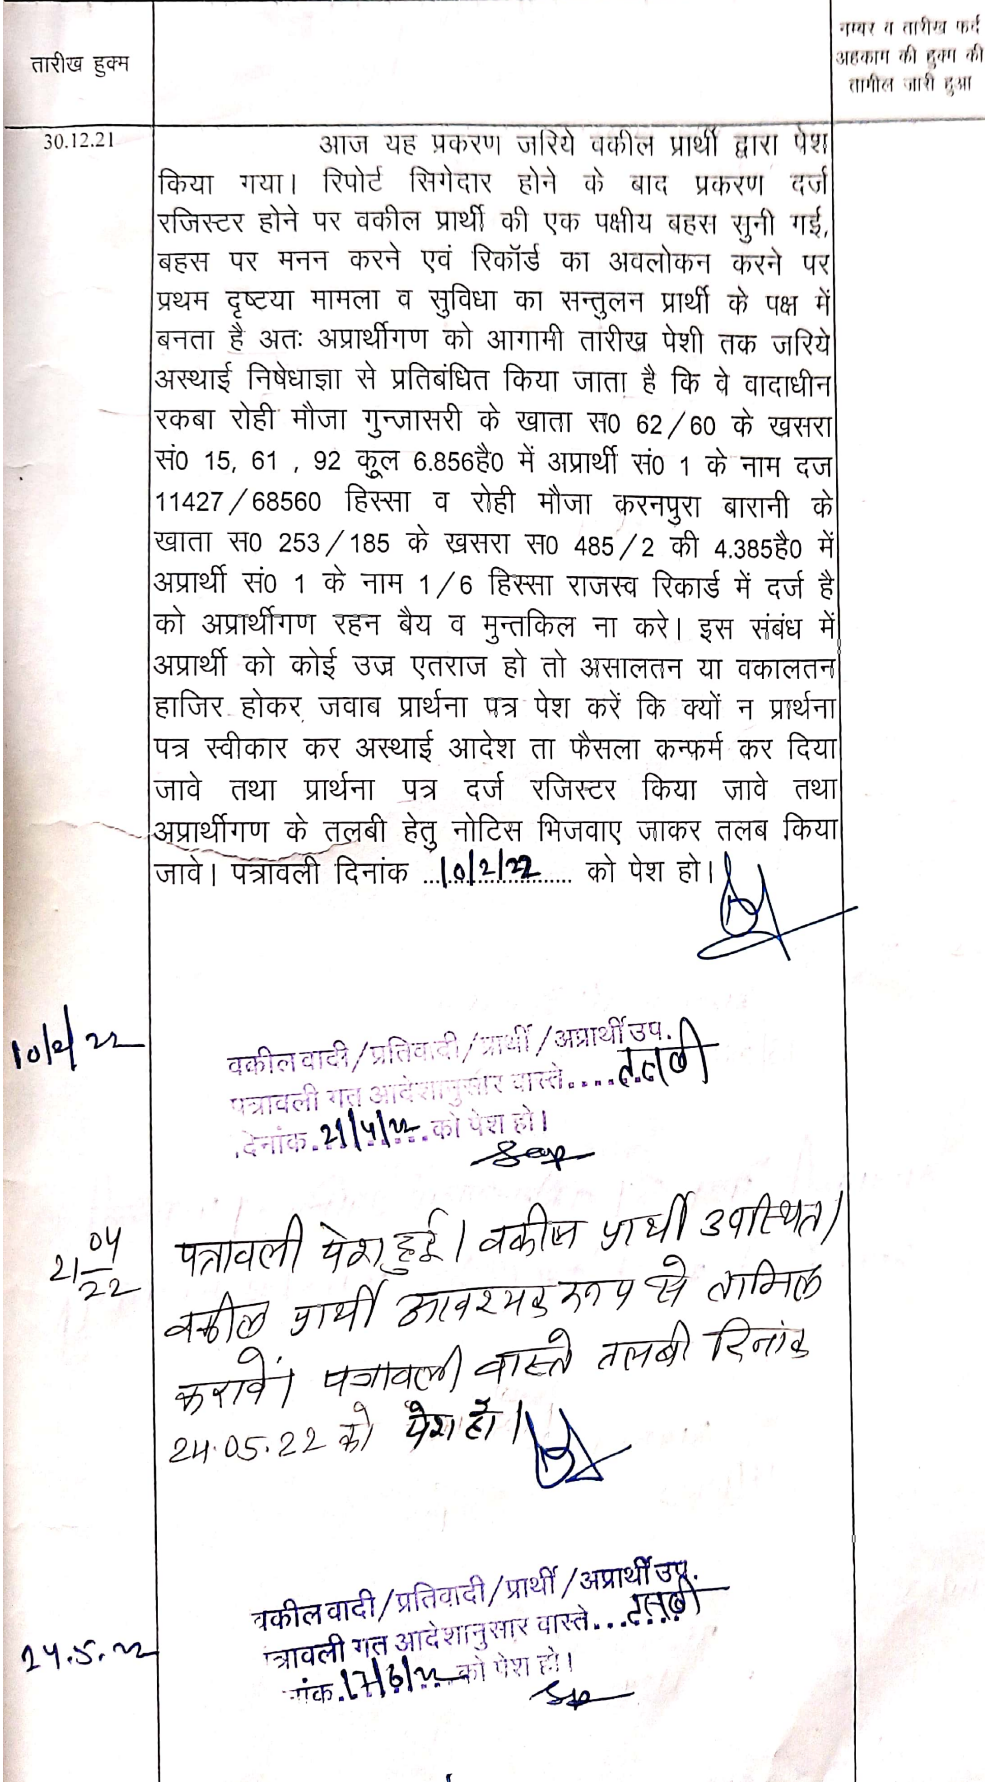 तारीख हुक्म
नम्बर व तारीख फर्द
अहकाम की हुक्म की
तामील जारी हुआ
30.12.21
आज यह प्रकरण जरिये वकील प्रार्थी द्वारा पेश
किया गया। रिपोर्ट सिगेदार होने के बाद प्रकरण दर्ज
रजिस्टर होने पर वकील प्रार्थी की एक पक्षीय बहस सुनी गई,
बहस पर मनन करने एवं रिकॉर्ड का अवलोकन करने पर
प्रथम दृष्टया मामला व सुविधा का सन्तुलन प्रार्थी के पक्ष में
बनता है अतः अप्रार्थीगण को आगामी तारीख पेशी तक जरिये
अस्थाई निषेधाज्ञा से प्रतिबंधित किया जाता है कि वे वादाधीन
रकबा रोही मौजा गुन्जासरी के खाता स0 62/60 के खसरा
सं0 15, 61 , 92 कुल 6.856है0 में अप्रार्थी सं0 1 के नाम दज
11427/68560 हिस्सा व रोही मौजा करनपुरा बारानी के
खाता स0 253/185 के खसरा स0 485/2 की 4.385है0 में
अप्रार्थी सं0 1 के नाम 1/6 हिस्सा राजस्व रिकार्ड में दर्ज है
को अप्रार्थीगण रहन बैय व मुन्तकिल ना करे। इस संबंध में
अप्रार्थी को कोई उज्र एतराज हो तो असालतन या वकालतन
हाजिर होकर जवाब प्रार्थना पत्र पेश करें कि क्यों न प्रार्थना
पत्र स्वीकार कर अस्थाई आदेश ता फैसला कन्फर्म कर दिया
जावे तथा प्रार्थना पत्र दर्ज रजिस्टर किया जावे तथा
अप्रार्थीगण के तलबी हेतु नोटिस भिजवाए जाकर तलब किया
जावे। पत्रावली दिनांक 10/2/22 को पेश हो।
10/2/22
वकील वादी/प्रतिवादी/प्रार्थी/अप्रार्थी उप.
पत्रावली गत आदेशानुसार वास्ते.... तलबी
देनांक. 21/4/22 को पेश हो।
21 04/22
पत्रावली पेश हुई। वकील प्रार्थी उपस्थित।
वकील प्रार्थी आवश्यक रूप से तामिल
करावें। पत्रावली वास्ते तलबी दिनांक
24.05.22 को पेश हो।
24.5.22
वकील वादी/प्रतिवादी/प्रार्थी/अप्रार्थी उप.
त्रावली गत आदेशानुसार वास्ते... तलबी
नांक. 17/6/22 को पेश हो।